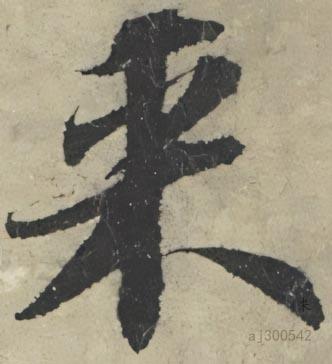 来
来
aj300542